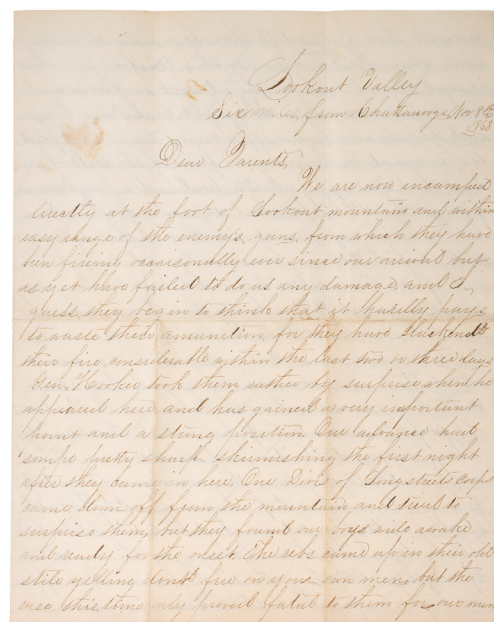 Lookout Valley
Six miles from Chattanooga Nov 8th
Dear Parents
We are now encamped
directly at the foot of Lookout mountain and within
easy range of the enemy's guns, from which they have
been fireing occasionally ever since our arrival but
as yet have failed to do us any damage, and I
guess they begin to think that it hardly pays
to waste their amunition, for they have slackend
their fire considerable within the last two or three days
Gen Hooker took them rather by surprise when he
appeared here and has gained a very important
point and a strong position. Our advance had
some pretty sharp skirmishing the first night
after they came in here. One Divis of Longstreets Corps
came down off from the mountain, and tried to
surprise them, but they found our boys wide awake
and ready for the onset. The rebs came up in their old
stile yelling dont fire on your own men, but the
ruse this time only proved fatal to them for our men